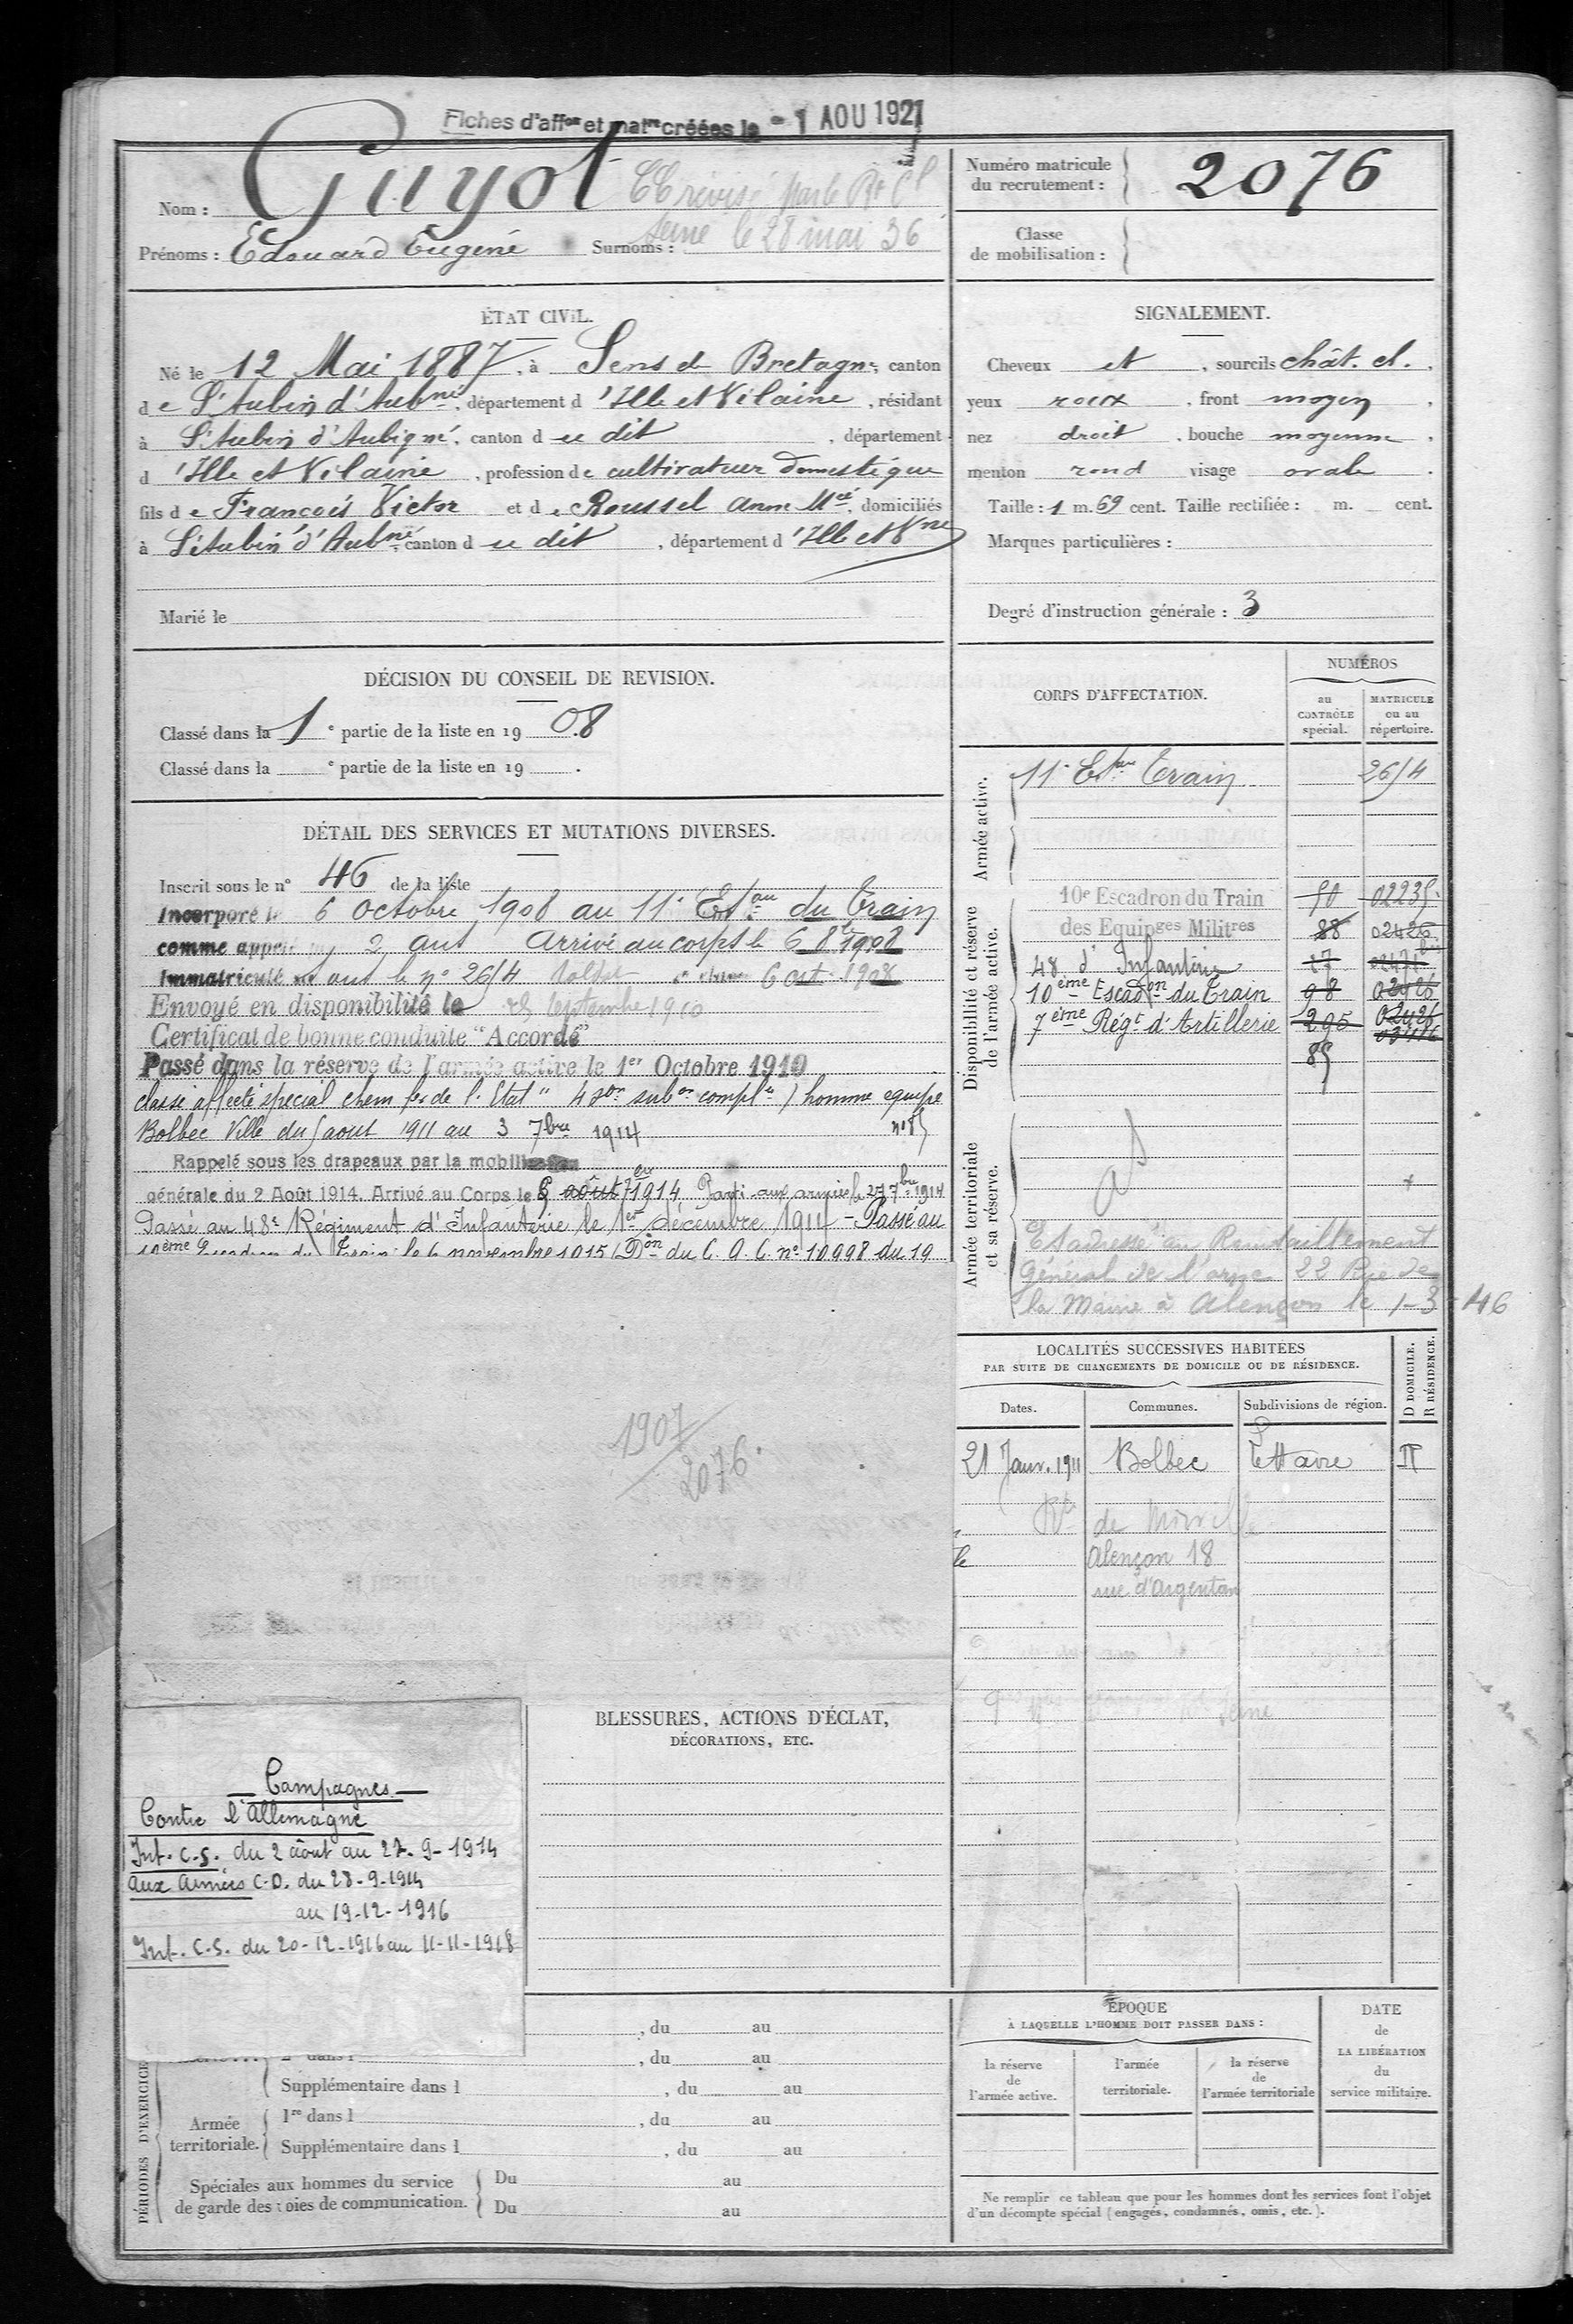 Fiches d'affon et matre créées le - 1 AOU 1921
Nom : Guyot
CC révisé par le
Seine le 28 mai 36
Prénoms : Edouard Eugène Surnoms :
Numéro matricule
du recrutement : 2076
Classe
de mobilisation :
ÉTAT CIVIL.
Né le 12 Mai 1887, à Sens de Bretagne, canton
de St Aubin d'Aubné, département d'Ille et Vilaine, résidant
à St Aubin d'Aubigné, canton du dit, département
d'Ille et Vilaine, profession de cultivateur domestique
fils de François Victor et de Roussel Anne Mie, domiciliés
à St Aubin d'Aubné, canton du dit, département d'Ille et Vne
Marié le
SIGNALEMENT.
Cheveux et, sourcils chât. cl.,
yeux roux, front moyen,
nez droit, bouche moyenne,
menton rond visage ovale.
Taille : 1 m. 69 cent. Taille rectifiée : m. cent.
Marques particulières :
Degré d'instruction générale : 3
DÉCISION DU CONSEIL DE REVISION.
Classé dans la 1e partie de la liste en 1908
Classé dans la e partie de la liste en 19 .
DÉTAIL DES SERVICES ET MUTATIONS DIVERSES.
Inscrit sous le n° 46 de la liste
Incorporé le 6 octobre 1908 au 11e Eson du Train
comme appelé 2 ans Arrivé au corps le 6 8bre 1908
Immatriculé sous le n° 2614 soldat 6 oct 1908
Envoyé en disponibilité le 25 septembre 1910
Certificat de bonne conduite "Accordé"
Passé dans la réserve de l'armée active le 1er Octobre 1910
classé affecté spécial chem fer de l'Etat" 4 son subon complre) homme équipe
Bolbec Ville du 5 aout 1911 au 3 7bre 1914 n° 85
Rappelé sous les drapeaux par la mobilisation
générale du 2 Août 1914. Arrivé au Corps le 5 août 7bre 1914 Parti aux armées le 27 7bre 1914
Passé au 48e Régiment d'Infanterie le 1er décembre 1914 - Passé au
10ème Escadron du Train le 6 novembre 1915 (Don du C.A.C. n° 10998 du 19
1907
2076
CORPS D'AFFECTATION.
NUMÉROS
au
CONTRÔLE
spécial.
MATRICULE
ou au
répertoire.
Armée active.
11e Eson Train 2614
Disponibilité et réserve
de l'armée active.
10e Escadron du Train 50 02235
des Equipges Militres 88 02426
48e d'Infanterie 27 02471 bis
10ème Escadon du Train 98 02426
7ème Régt d'Artillerie 295 02426
85 03416
Armée territoriale
et sa réserve.
aS
Et adressé au Ravitaillement
Général de l'Orne 22 Rue de
la Mairie à Alençon le 1-3-46
LOCALITÉS SUCCESSIVES HABITÉES
PAR SUITE DE CHANGEMENTS DE DOMICILE OU DE RÉSIDENCE.
Dates.
Communes.
Subdivisions de région.
D DOMICILE.
R RÉSIDENCE.
21 Janv. 1911 Bolbec Le Havre
Rte de Mirville
le Alençon 18
rue d'Argentan
Campagnes
Contre l'Allemagne
Int. C.S. du 2 août au 27-9-1914
Aux Armées C.D. du 28-9-1914
au 19-12-1916
Int. C.S. du 20-12-1916 au 11-11-1918
BLESSURES, ACTIONS D'ÉCLAT,
DÉCORATIONS, ETC.
PÉRIODES D'EXERCICE
, du au
2e dans l , du au
Supplémentaire dans l , du au
Armée
territoriale.
1re dans l , du au
Supplémentaire dans l , du au
Spéciales aux hommes du service
de garde des voies de communication.
Du au
Du au
ÉPOQUE
À LAQUELLE L'HOMME DOIT PASSER DANS :
la réserve
de
l'armée active.
l'armée
territoriale.
la réserve
de
l'armée territoriale
DATE
de
LA LIBÉRATION
du
service militaire.
Ne remplir ce tableau que pour les hommes dont les services font l'objet
d'un décompte spécial (engagés, condamnés, omis, etc.).